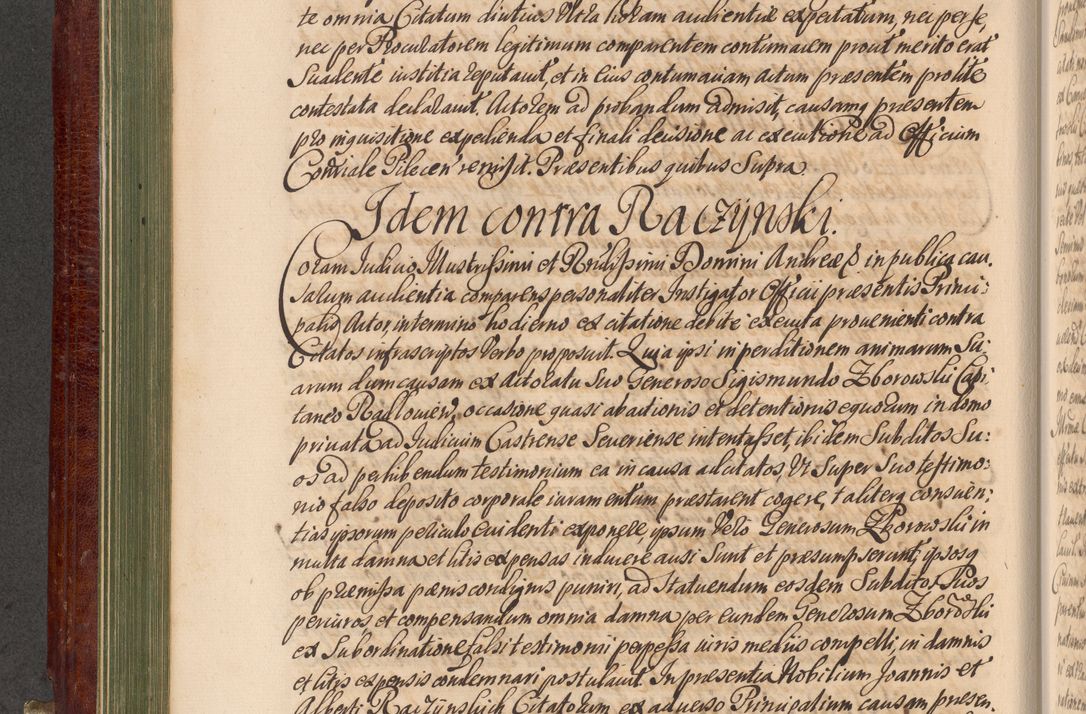 te omnia Citatum diutius Ultra horam audientiæ expectatum, nec per se,
nec per Procuratorem legitimum comparentem contumacem prout merito erat
Suadente iustitia reputavit, et in eius contumaciam actum præsentem pro lite
contestata declaravit. Actorem ad probandum admisit, causamq præsentem
pro inquisitione expedienda et finali decisione ac executione ad Officium
remisit. Præsentibus quibus Supra
Idem contra Raczÿnski.
Coram Iudicio Illustrissimi et Rndissimi Domini Andreæ & in publica cau,
sarum audientia comparens personaliter Instigator Officii præsentis Princi:
palis Actor, in termino hodierno ex citatione debite executa provenienti contra
Citatos infrascriptos Verbo proposuit. Quia ipsi in perditionem animarum Su
arum dum causam ex Actoratu Suo Generoso Sigismundo Zborowski Capi
taneo occasione quasi abactionis et detentionis equorum in domo
privata ad Iudicium Castrense Severiense intentasset, ibidem Subditos Su:
os ad perhibendum testimonium ea in causa adcitatos, Vt Super Suo testimo:
nio falso deposito corporale iuramentum præstarent cogere, taliterq conscien:
tias ipsorum periculo evidenti exponere, ipsum Vero Generosum Zborowski in
multa damna et litis expensas inducere ausi Sunt et præsumpserunt, ipsosq
ob præmissa pænis condignis puniri, ad Statuendum eosdem Subditos Suos
periuros et compensandum omnia damna per eundem Generosum Zborowski
ex Subordinatione falsi testimonii perpessa iuris mediis compelli, in damnis
et litis expensis condemnari postulavit. In præsentia Nobilium Joannis et
Alberti Raczÿnskich Citatorum ex adverso Principalium causam præsen.